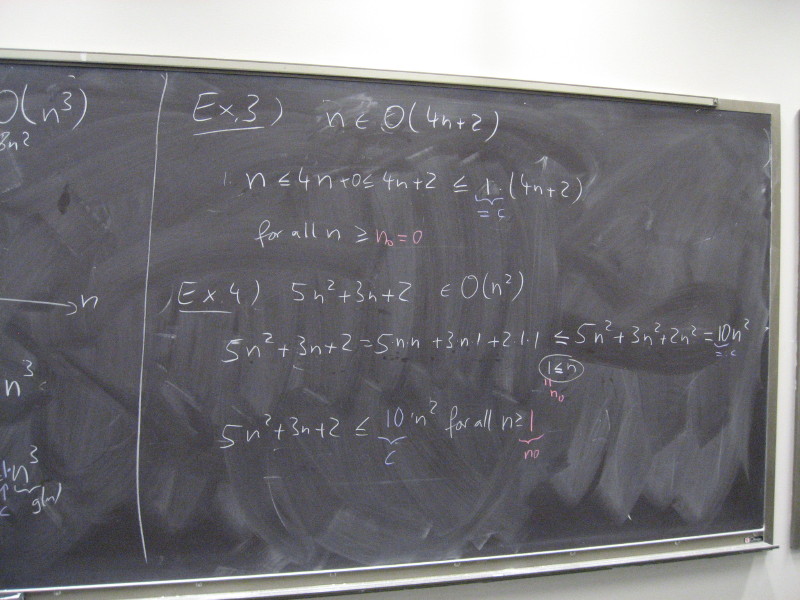 O(n³)
8n²
n
n³
n³
g(n)
c
Ex.3) n ∈ O(4n+2)
1. n ≤ 4n+0 ≤ 4n+2 ≤ 1 (4n+2)
= c
for all n ≥ n₀ = 0
Ex.4) 5n²+3n+2 ∈ O(n²)
5n²+3n+2 = 5·n·n +3·n·1 +2·1·1 ≤ 5n²+3n²+2n² = 10n²
1≤n = c
n₀
5n²+3n+2 ≤ 10·n² for all n≥1
c n₀